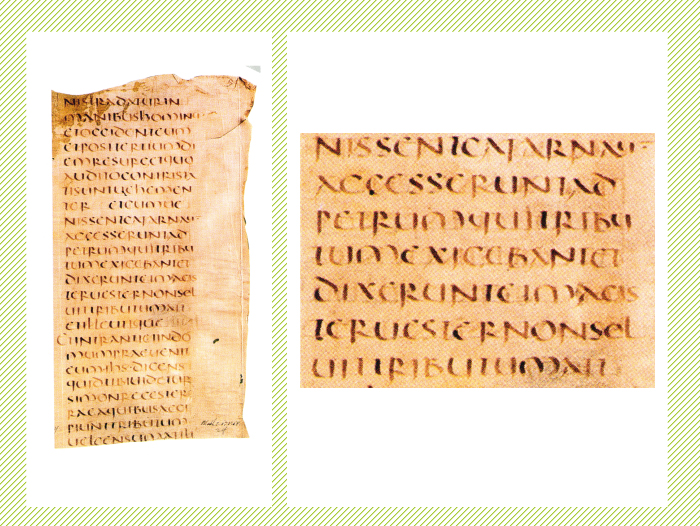 NISTRADATURIN
MANIBUSHOMIN
ETOCCIDENTEUM
ETPOSTERTIUMDI
AUDITOCONTRISTA
TISUNTUEHEMEN
TER ETCUMUE
NISSENTCAFARNAU
ACCESSERUNTAD
PETRUMQUITRIBU
TUMEXIGEBANTET
DIXERUNTEIMAGIS
TERUESTERNONSOL
UITTRIBUTUMAIT
MUMPRAEUENIT
EUMIHSDICENS
QUIDTIBIUIDETUR
SIMONREGESTER
RAEAQUIBUSACCI
PIUNTTRIBUTUM
UELCENSUMAFILI
NISSENTCAFARNAU
ACCESSERUNTAD
PETRUMQUITRIBU
TUMEXIGEBANTET
DIXERUNTEIMAGIS
TERUESTERNONSOL
UITTRIBUTUMAIT